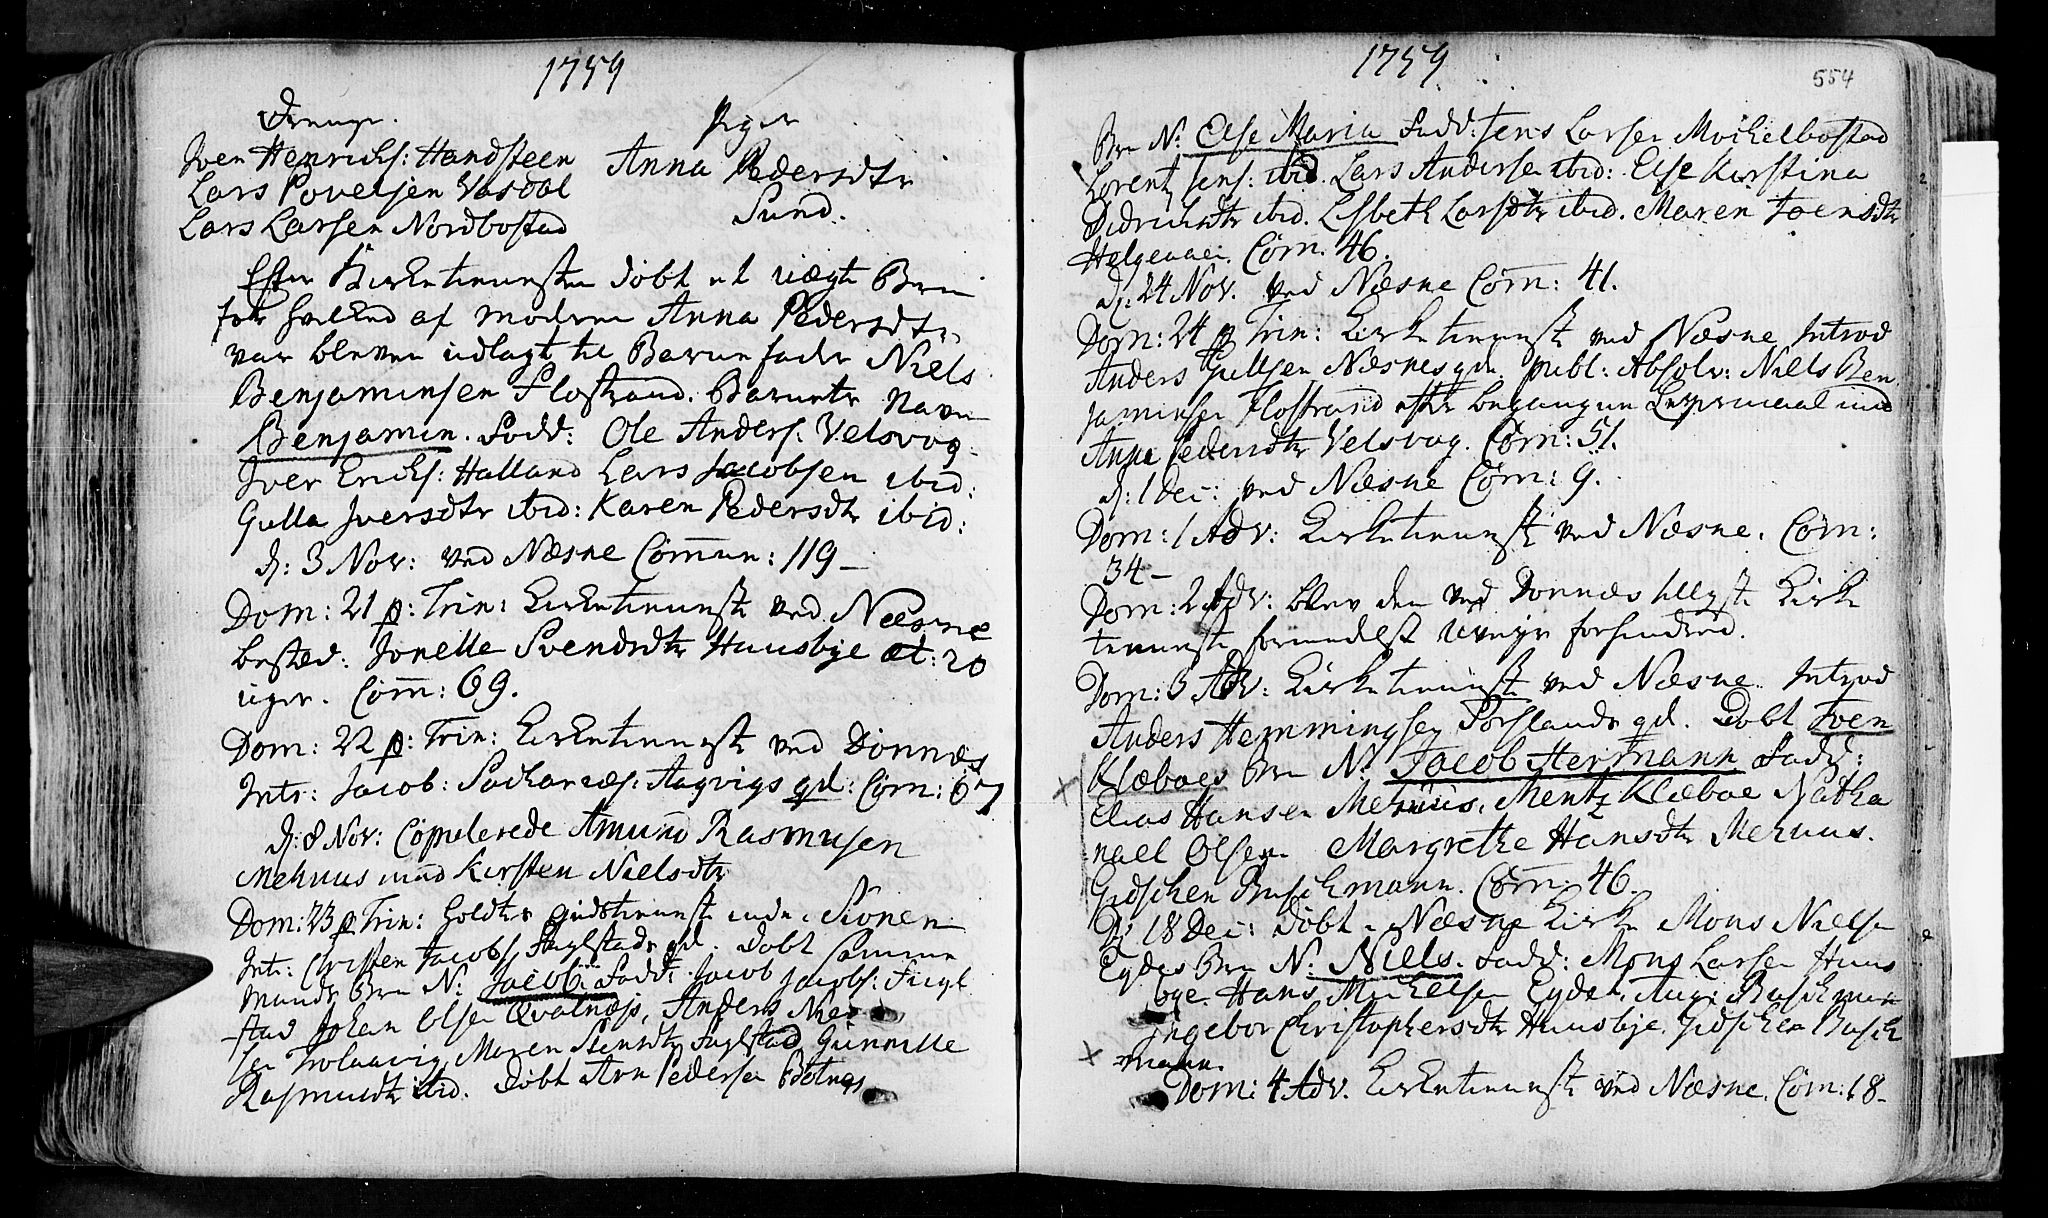 1759
Drenge.
Iver Henrichs: Handsteen
Lars Povelsen Vasdal
Lars Larsen Nordbostad
Piger
Anna Pedersdtr
Sund.
Efter Kirketienesten döbt et uægte Barn
for hvilked af moderen Anna Pedersdtr
var bleven udlagt til Barnefader Niels
Benjaminsen Flostrand. Barnets Navn
Benjamin. Fadd: Ole Anders: Velsvog.
Iver Ericks: Halland Lars Jacobsen ibid:
Gulla Iversdtr ibid: Karen Pedersdtr ibid:
d: 3 Nov: ved Næsne Commun: 119 –
Dom: 21 p: Trin: Kirketienneste ved Næsne
bested: Jonelle Svendsdtr Huusbye æt: 20
uger. Comm: 69.
Dom: 22 p: Trin: Kirketienneste ved Dönnæs
Intr: Jacob: Sacharias: Aagvigs qd: Com: 67
d: 8 Nov: Copulerede Amund Rasmusen
Mehuus med Kirsten Nielsdtr
Dom: 23 p Trin: holdtes gudstienneste inde i Sionen
Intr: Christen Jacobs: Fuglstads qd. Döbt Commun
munds Brn N: Jacob. Fadd: Jacob Jacobs: Fugl
stad Johan Olsen Qvalnæs, Anders Niel
sen Maren Stensdtr Fuglstad Gunnille
Rasmusdtr ibid. Döbt Arn Pedersen Botnes
1759
554
Brn N: Else Maria Fadd: Jens Larsen Mickelbostad
Lorentz Jens: ibid. Lars Andersen ibid: Else Kirstina
Didrichsdtr ibid. Lisbeth Larsdtr ibid. Maren Joensdtr
Helgeaaen. Com. 46.
d: 24 Nov. ved Næsne Com: 41.
Dom: 24 p Trin: Kirketienneste ved Næsne Introd
Anders Gullsen Næsnes qd. publ: Absolv: Niels Ben
jaminsen Flostrand efter begangen Leyermaal med
Anna Pedersdtr Velsvog. Com: 51.
d: 1 Dec: ved Næsne Com: 9.
Dom: 1 Adv: Kirketienneste ved Næsne. Com:
34 –
Dom: 2 Adv: blev den ved Dönnæs tillyste Kirke
tienneste formedelst Uveyr forhindred.
Dom: 3 Adv: Kirketienneste ved Næsne. Introd
Anders Hemmingsen Forslands qd. Döbt Iven
Klæboes Brn N: Jacob Hermann Fadd:
Elias Hansen Mehuus. Mentz Klæboe Natha
nael Olsen. Margrethe Hansdtr Mehuus.
Gidschen Buschmann. Com: 46.
D: 18 Dec: döbt i Næsne Kirke Mons Nielsen
Eydes Brn N: Niels. Fadd: Mons Larsen Huus
bye. Hans Mickelsen Eydet. Aug: Buschman
Ingebor Christophersdtr Huusbye. Gidschen Busch
mann.
Dom: 4 Adv. Kirketienneste ved Næsne. Com: 18 –